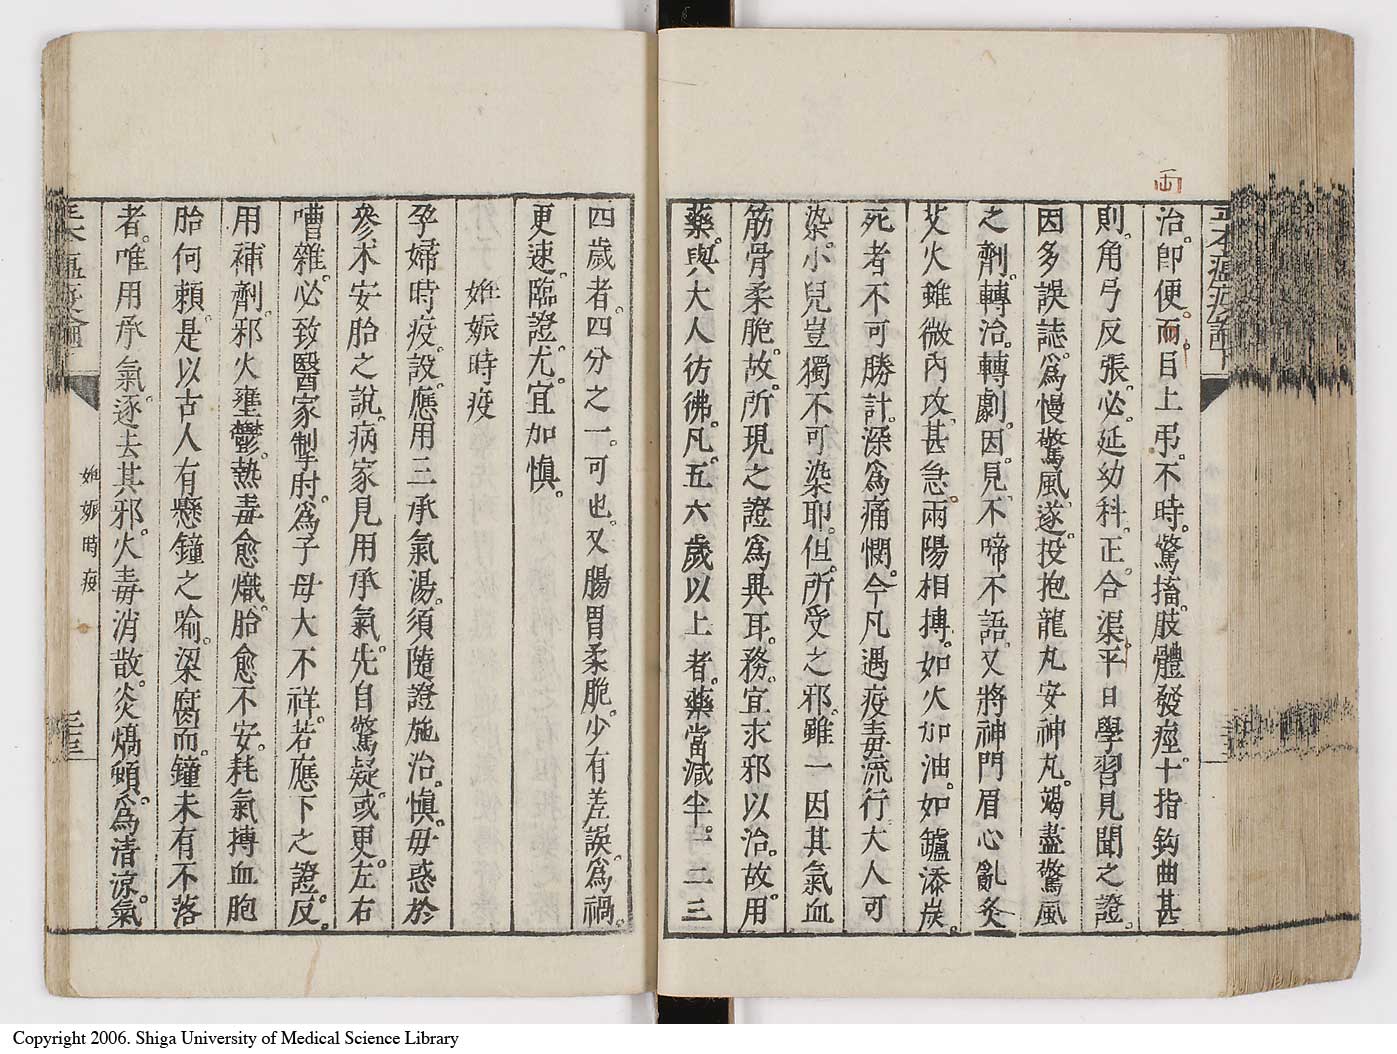 治。即便。而。目上弔。不時。驚搐。肢體發痙。十指鈎曲甚
則。角弓反張。必。延幼科。正。合渠。平日學習見聞之證。
因多誤誌。爲慢驚風。遂。投抱龍丸安神丸。竭盡驚風
之劑。轉治。轉劇。因。見。不啼不語。又將神門眉心亂灸
艾火雖微內攻。甚急。兩陽相搏。如火加油。如鑪添炭。
死者不可勝計。深爲痛憫。今凡遇疫毒流行大人可
染。小兒豈獨不可染耶。但。所受之邪。雖一因其氣血
筋骨柔脆。故。所現之證爲異耳。務。宜求邪以治。故。用
藥。與大人彷彿。凡。五六歲以上者。藥當減半。二三
四歲者。四分之一。可也。又腸胃柔脆。少有差誤。爲禍。
更速。臨證。尤。宜加愼。
姙娠時疫
孕婦時疫。設。應用三承氣湯。須隨證施治。愼。毋惑於
參朮安胎之說。病家見用承氣。先自驚疑。或更。左右
嘈雜。必。致醫家掣肘。爲子母大不祥。若應下之證。反。
用補劑。邪火壅鬱。熱毒愈熾。胎愈不安。耗氣搏血胞
胎何賴。是以古人有懸鐘之喻。梁腐而。鐘未有不落
者。唯用承氣。逐去其邪。火毒消散。炎熇頓爲清涼。氣。
姙娠時疫
三十三
Copyright 2006. Shiga University of Medical Science Library